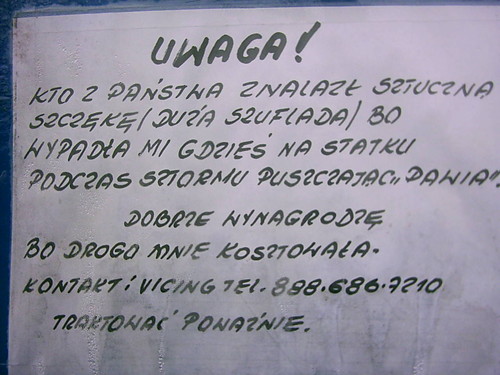 UWAGA!
KTO Z PAŃSTWA ZNALAZŁ SZTUCZNĄ
SZCZĘKĘ/DUŻA SZUFLADA/ BO
WYPADŁA MI GDZIEŚ NA STATKU
PODCZAS SZTORMU PUSZCZAJĄC„PAWIA".
DOBRZE WYNAGRODZĘ
BO DROGO MNIE KOSZTOWAŁA.
KONTAKT: VICING TEL. 898.686.7210
TRAKTOWAĆ POWAŻNIE.